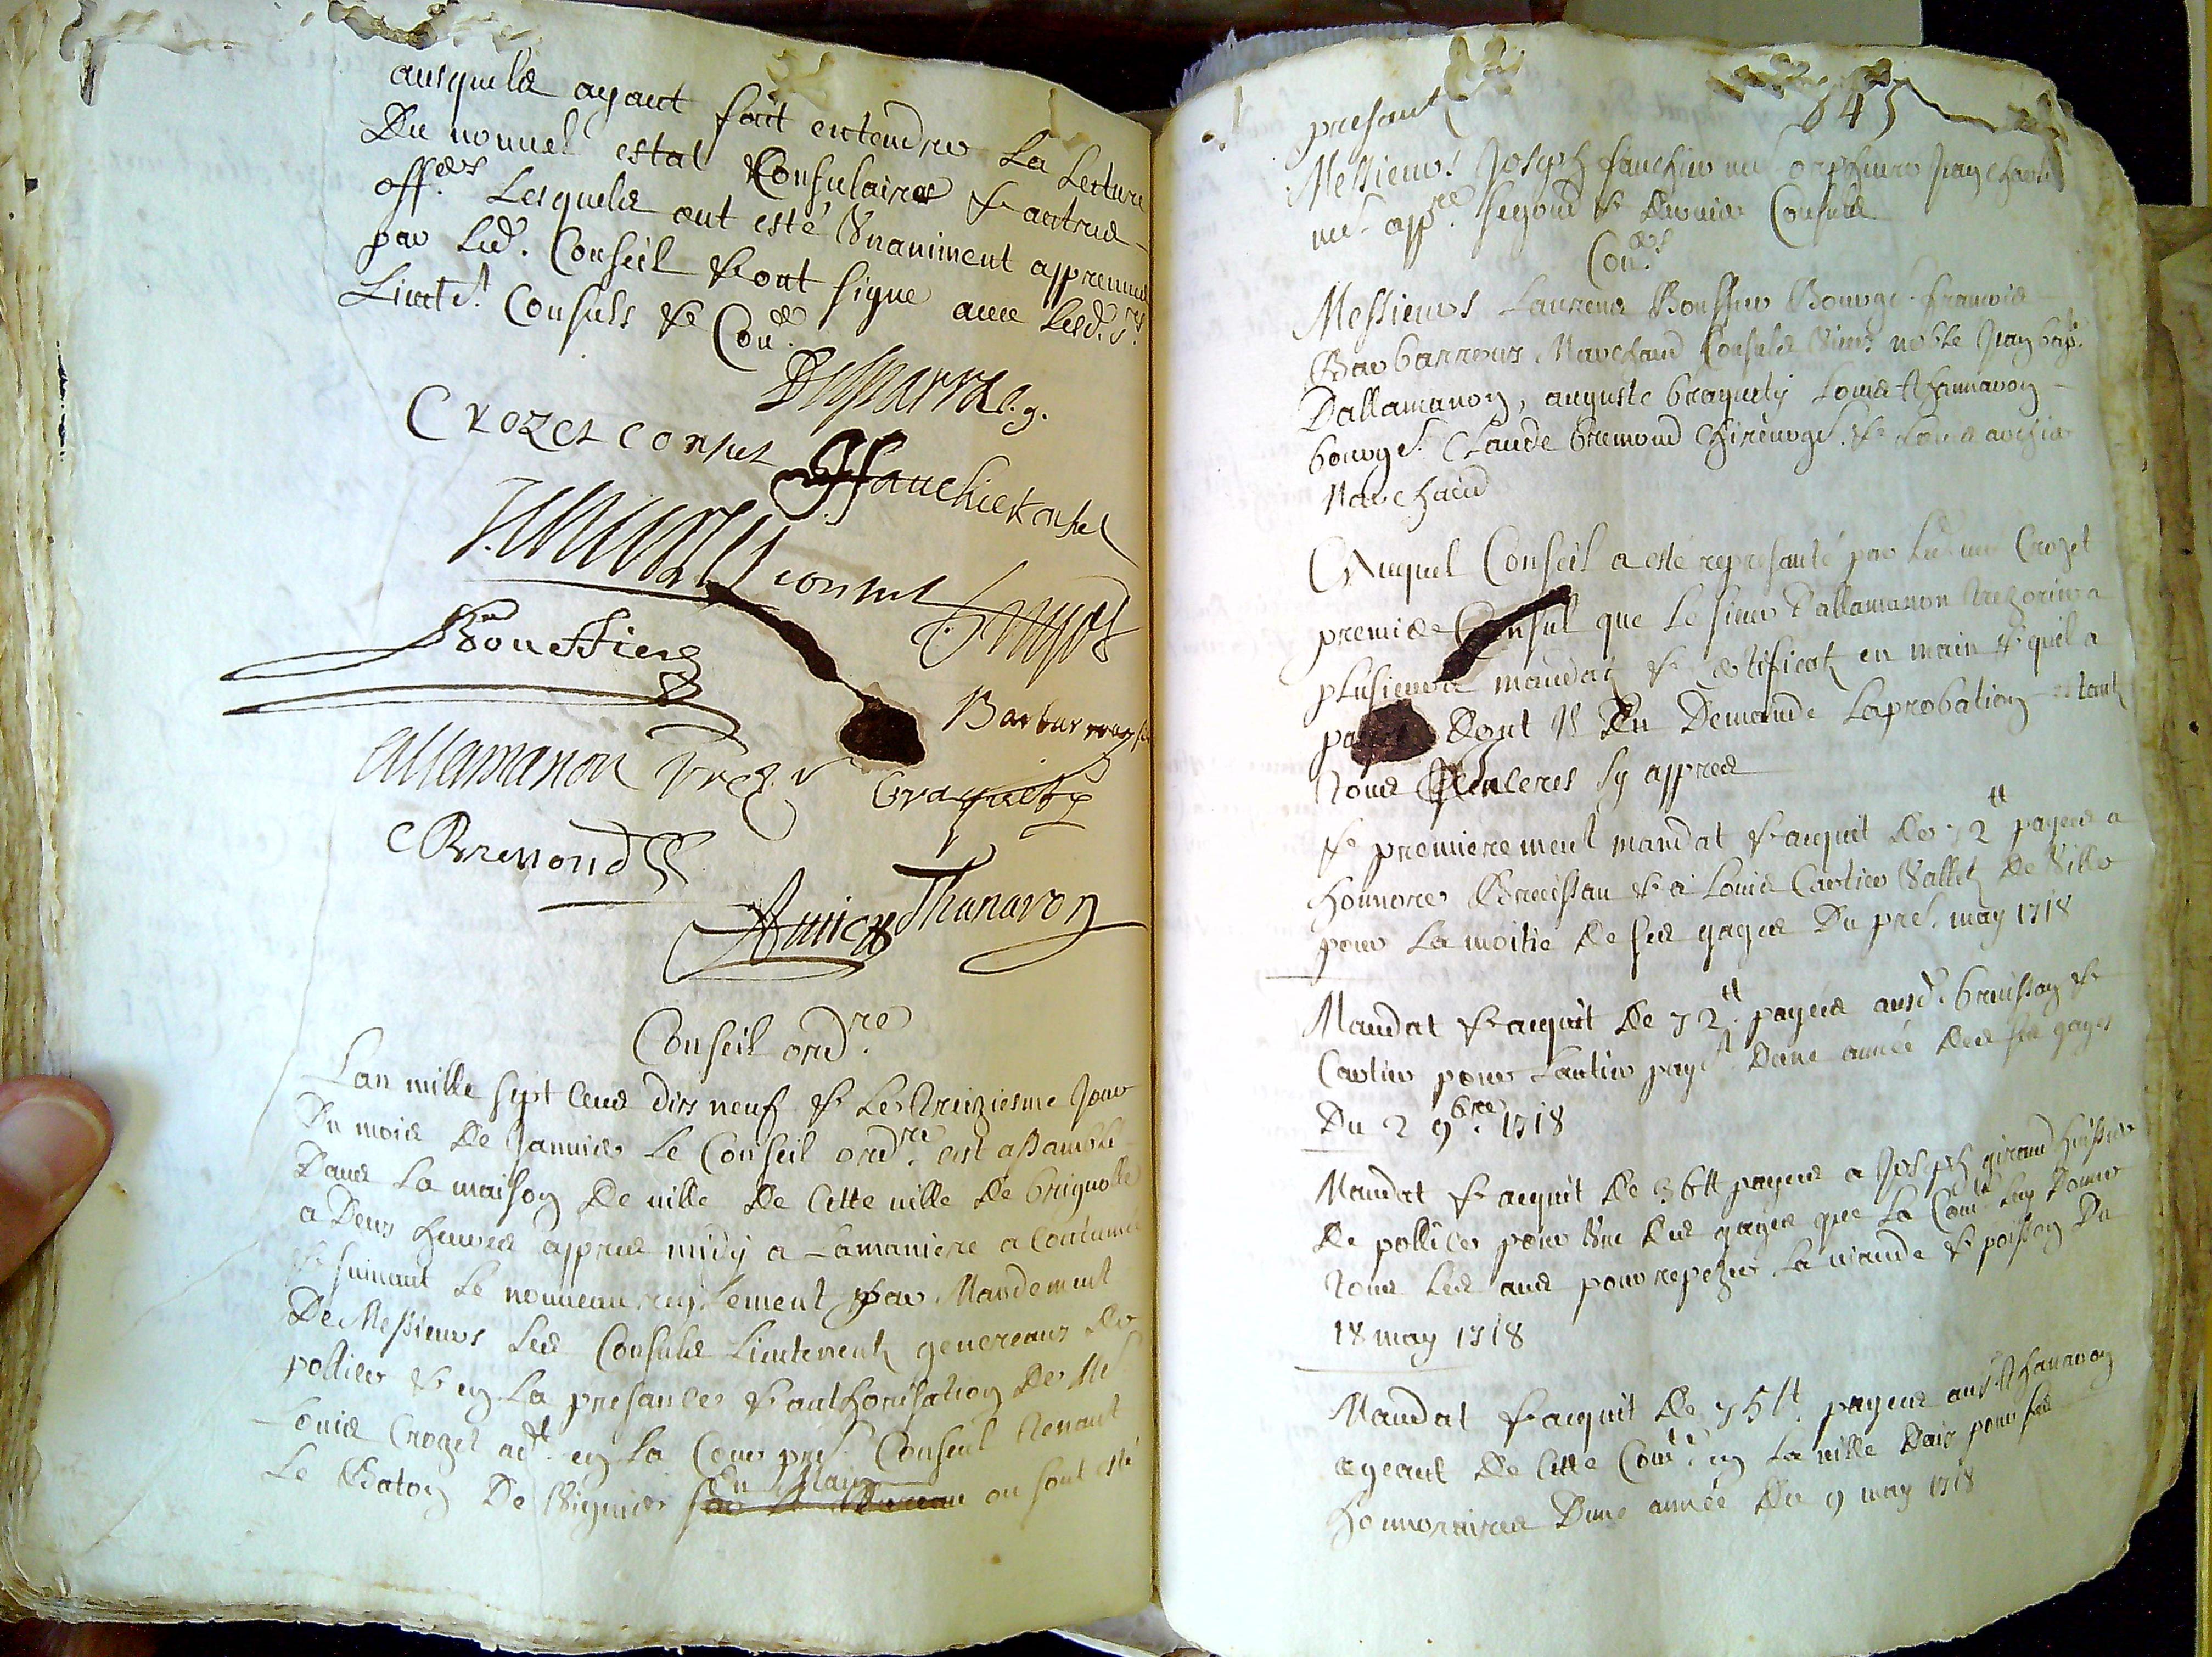 ausquels ayant fait entendre la lecture
du nouvel estat Consulaire & autres
off.ers lesquels ont esté Unaniment appreuvés
par led. Conseil & ont signé avec lesd. s.rs
Lieut.t Consuls & Con.ers
Crozet consul
ffauchier consul
consul
Bouffier
Barbarroux
allamanon trez.r
Braquety
C Bremond
Amic
Thanaron
Conseil ord.re
Lan mille sept Cens dix neuf & le treiziesme Jour
du mois de Janvier le Conseil ord.re est assamblé
dans la maison de ville de Cette ville de brignolle
a deux heures appres midy a la maniere acoutumée
& suivant le nouveau reglement par Mandement
De Messieurs les Consuls Lieutenentz genereaux de
pollice & en la presance & authorisation de Me
Louis Crozet ad.t en la Cour pre.r Consul tenant
le Baton de Viguier en Main ou sont esté
presant
145
Messieurs Joseph fauchier me orphevre Jean
me app.re segond & dernier Consuls
Con.ers
Messieurs Laurens Bouffier Bourge. francois
Barbarroux Marchand Consuls Vieux noble Jean bap.
Dallamanon, auguste braquety Louis Thannaron
bourges. Claude bremond chirurge. & Louis
Marchand
Auquel Conseil a esté represanté par led. me Crozet
premier Consul que le sieur d'allamanon trezorier a
plusieurs mandatz & certificatz en main & quil a
dont Il en demande laprobation estant
tous sy appres
& premierement mandat & acquit de 72 tt payées a
honnoré Brunissau & a Louis Cartier Valletz de Ville
pour la moitié de ses gages du pre. may 1718
Mandat & acquit de 72 tt payées ausd. &
Cartier pour lautier pay.t dune année des ses gages
Du 2 9bre 1718
Mandat & acquit de 36 tt payées a Joseph giraud huissier
de pollice pour Une des gages que la Com.té luy donne
tous les ans pour repezer la viande & poisson du
18 may 1718
Mandat & acquit de 75 tt payées au s. Thanaron
ageant de Cette Com.té en la ville Daix pour ses
honnoraires Dune année du 9 may 1718